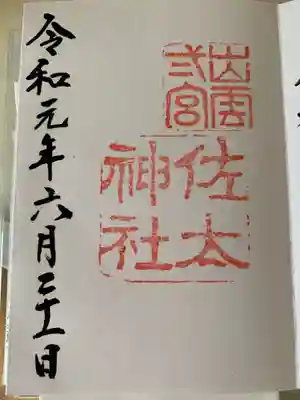 出雲
弍宮
佐太
神社
令和元年六月二十一日